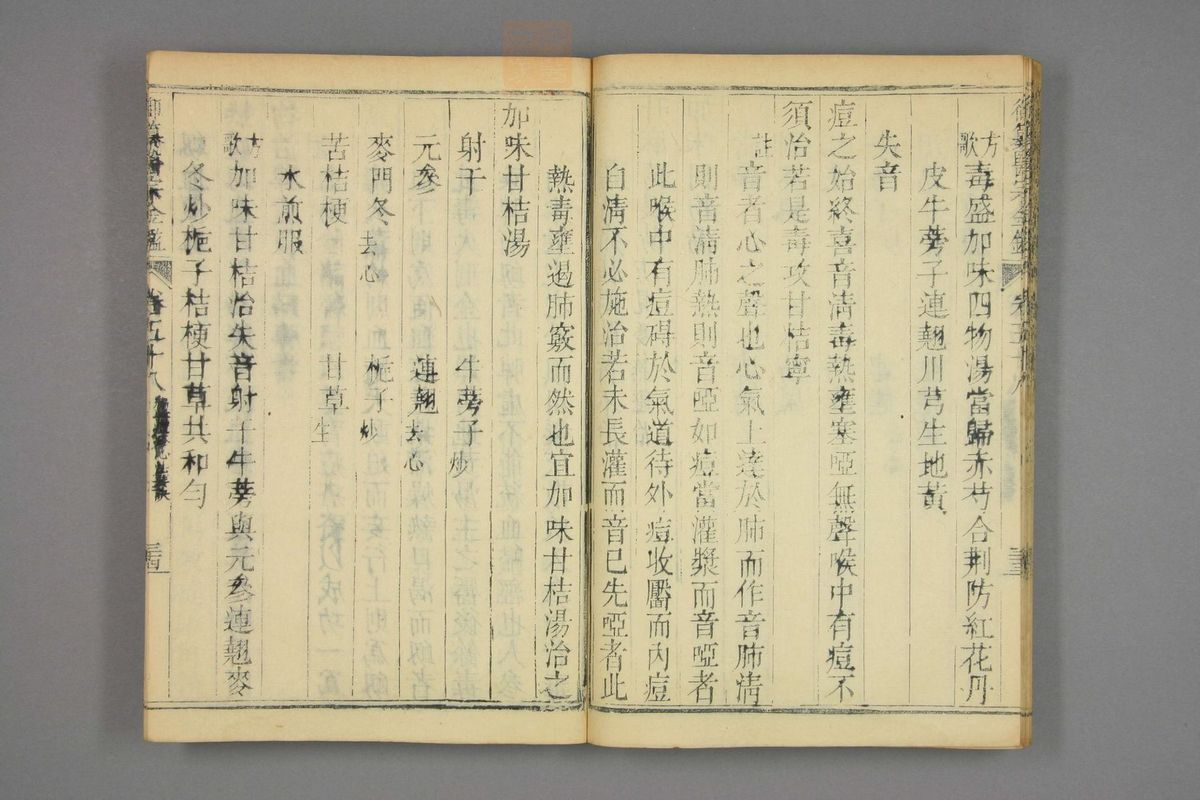 方歌 毒盛加味四物湯當歸赤芍合荆防紅花丹
皮牛蒡子連翹川芎生地黃
失音
痘之始終喜音清毒熱壅塞啞無聲喉中有痘不
須治若是毒攻甘桔寧
註 音者心之聲也心氣上達於肺而作音肺清
則音清肺熱則音啞如痘當灌漿而音啞者
此喉中有痘碍於氣道待外痘收靨而內痘
自清不必施治若未長灌而音已先啞者此
熱毒壅遏肺竅而然也宜加味甘桔湯治之
加味甘桔湯
射干 牛蒡子炒
元參 連翹去心
麥門冬去心 梔子炒
苦桔梗 甘草生
水煎服
方歌 加味甘桔治失音射干牛蒡與元參連翹麥
冬炒梔子桔梗甘草共和勻
御纂醫宗金鑑 卷五十八